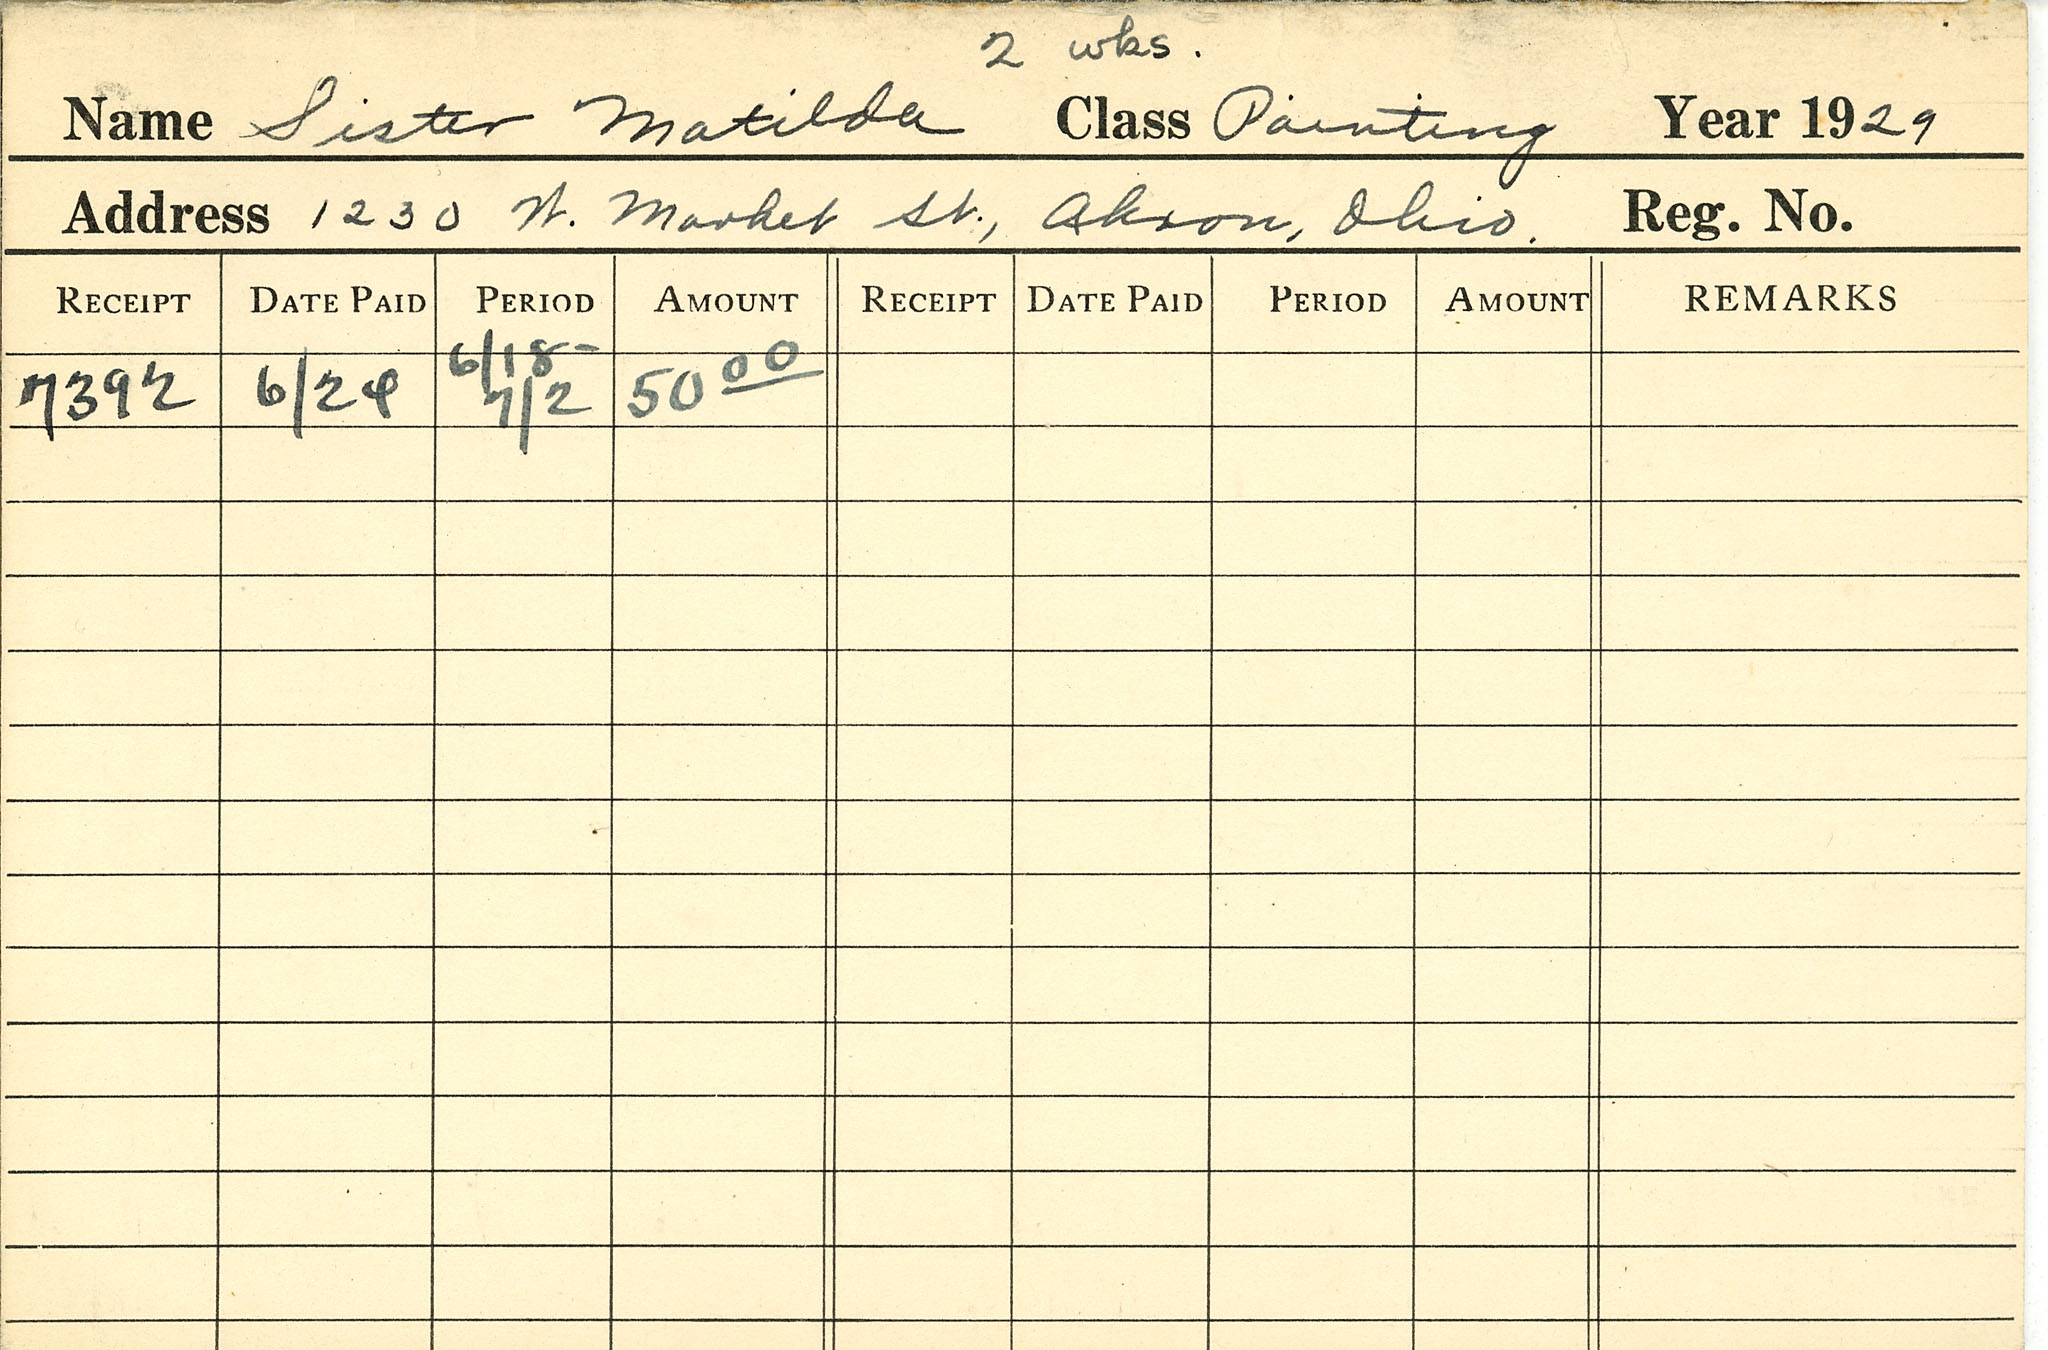 2 wks.
Name Sister Matilda Class Painting Year 1929
Address 1230 W. Market St., Akron, Ohio. Reg. No.
RECEIPT DATE PAID PERIOD AMOUNT RECEIPT DATE PAID PERIOD AMOUNT REMARKS
7392 6/24 6/18- 7/2 50 00